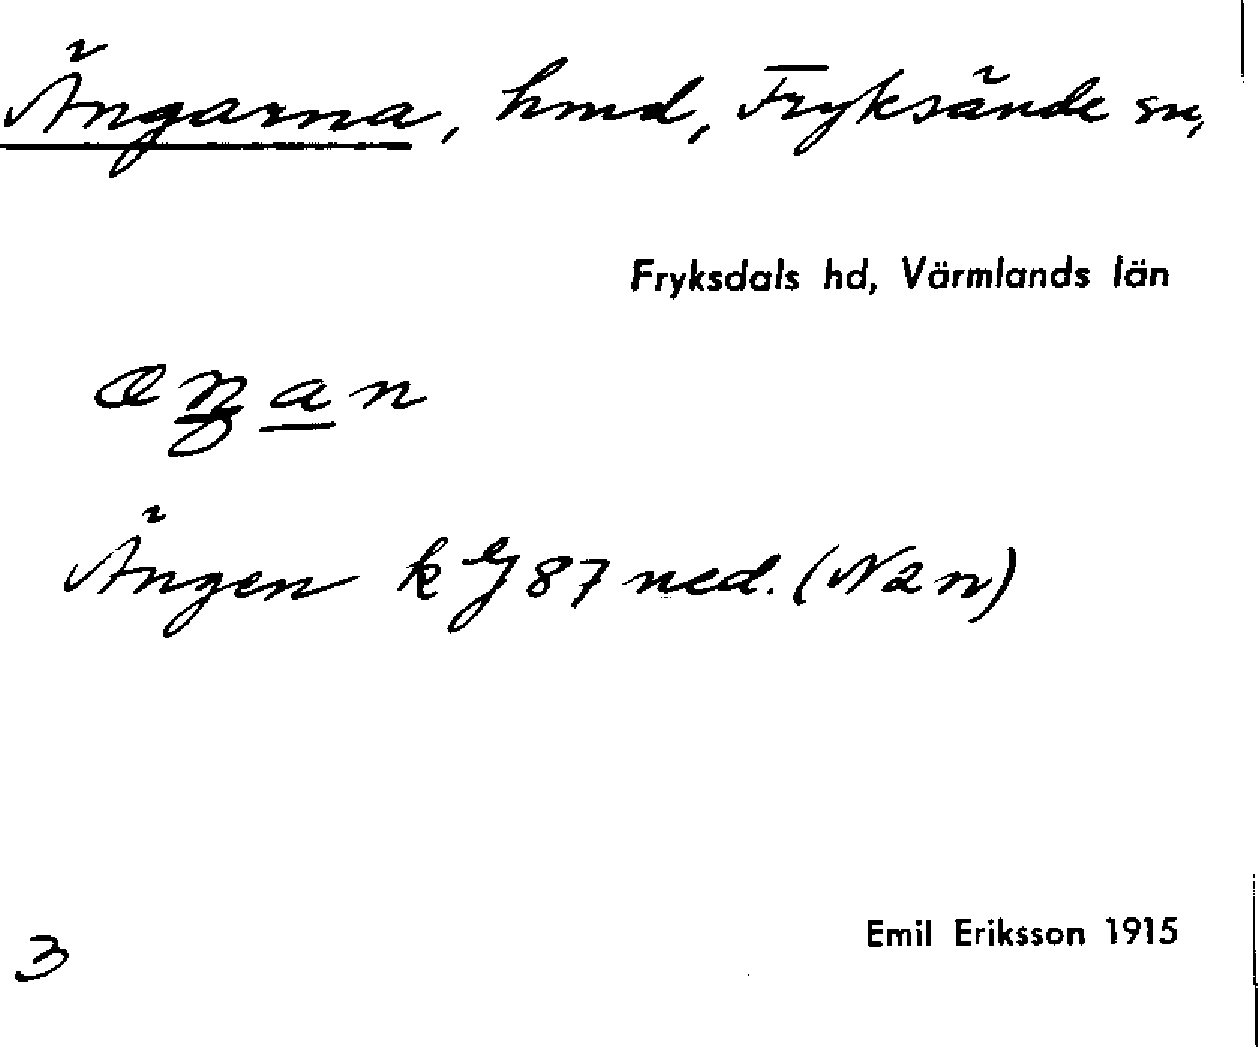 Ängarna, hmd, Fryksände sn,
Fryksdals hd, Värmlands län
Ängen k 87 ned. (N2n)
3
Emil Eriksson 1915